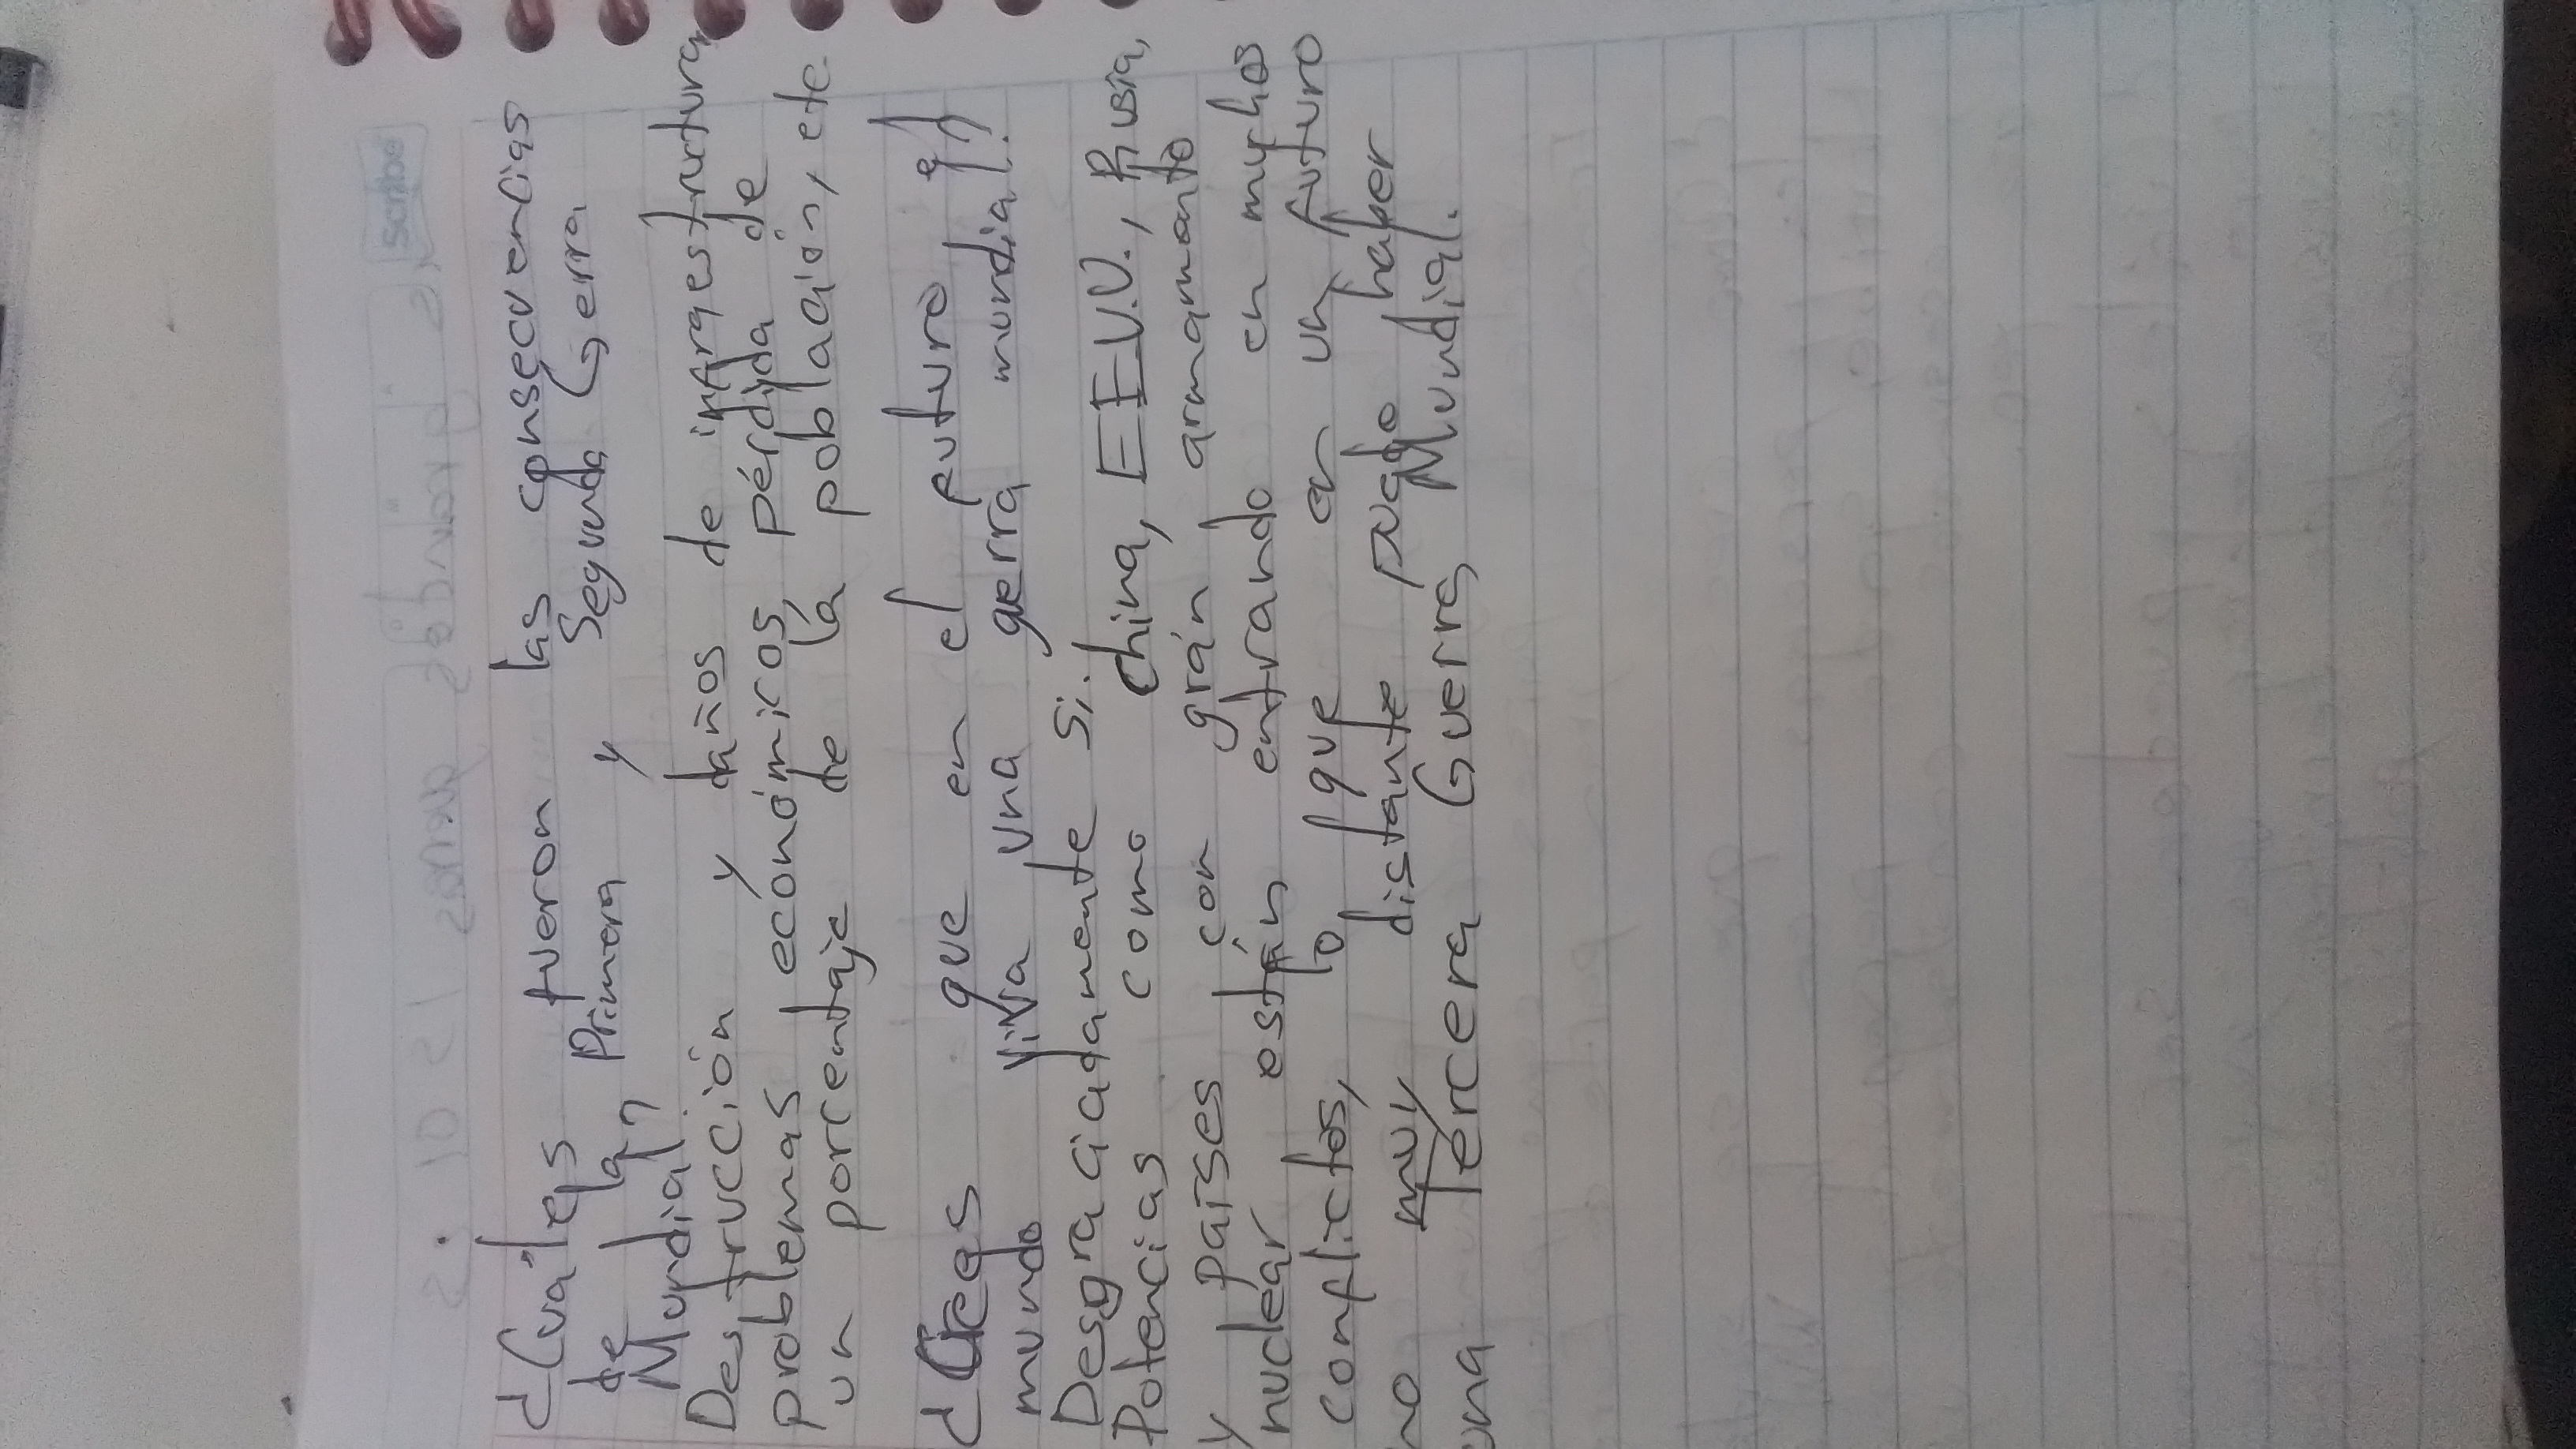 scribe
¿Cuáles fueron las consecuencias
de la Primera y Segunda Gerra
Mundial?
Destrucción y daños de infraestructura,
problemas económicos, pérdida de
un porcentaje de la población, etc.
¿Crees que en el futuro el
mundo viva una gerra mundial?
Desgraciadamente si.
Potencias como China, EE.UU., Rusia,
y países con grán armamanto
nuclear están entrando en muchos
conflictos, lo que en un futuro
no muy distante puede haber
una Tercera Guerra Mundial.